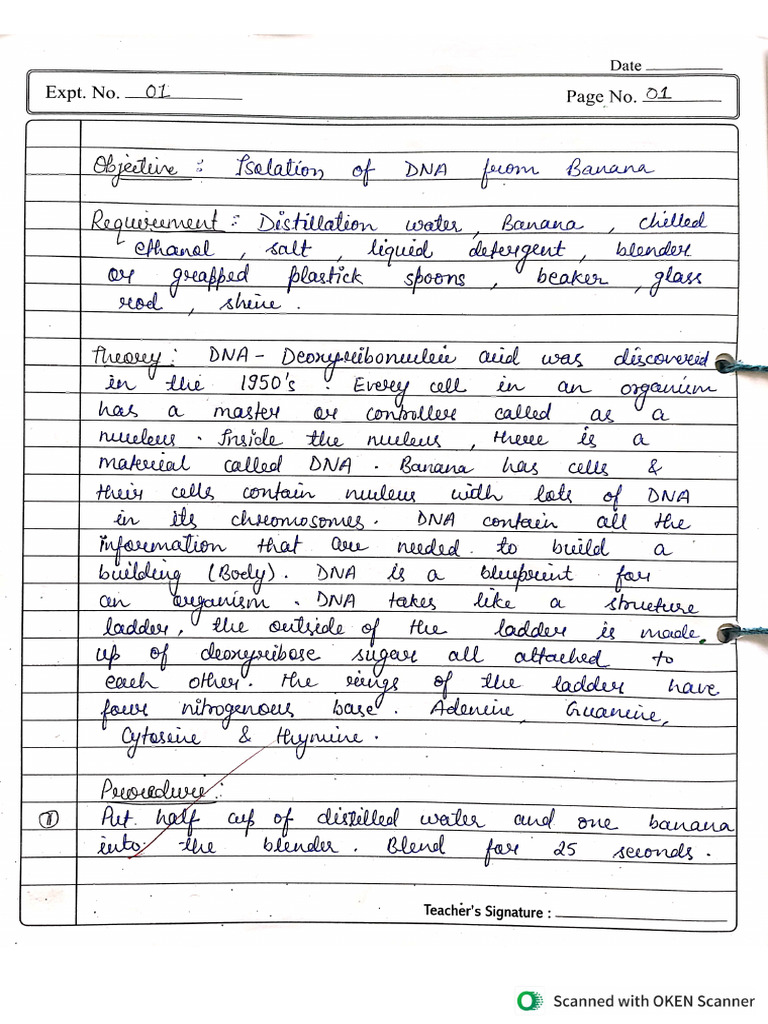 Date
Expt. No. 01
Page No. 01
Objective : Isolation of DNA from Banana
Requirement : Distillation water, Banana, chilled
ethanol, salt, liquid detergent, blender
or grapped plastick spoons, beaker, glass
rod, shine.
Theory : DNA - Deoxyribonucleic acid was discovered
in the 1950's. Every cell in an organism
has a master or controller called as a
nucleus. Inside the nucleus, there is a
material called DNA. Banana has cells &
their cells contain nucleus with lots of DNA
in its chromosomes. DNA contain all the
information that are needed to build a
building (Body). DNA is a blueprint for
an organism. DNA takes like a structure
ladder, the outside of the ladder is made
up of deoxyribose sugar all attached to
each other. The rings of the ladder have
four nitrogenous base. Adenine, Guanine,
Cytosine & Thymine.
Procedure :
① Put half cup of distilled water and one banana
into the blender. Blend for 25 seconds.
Teacher's Signature :
Scanned with OKEN Scanner